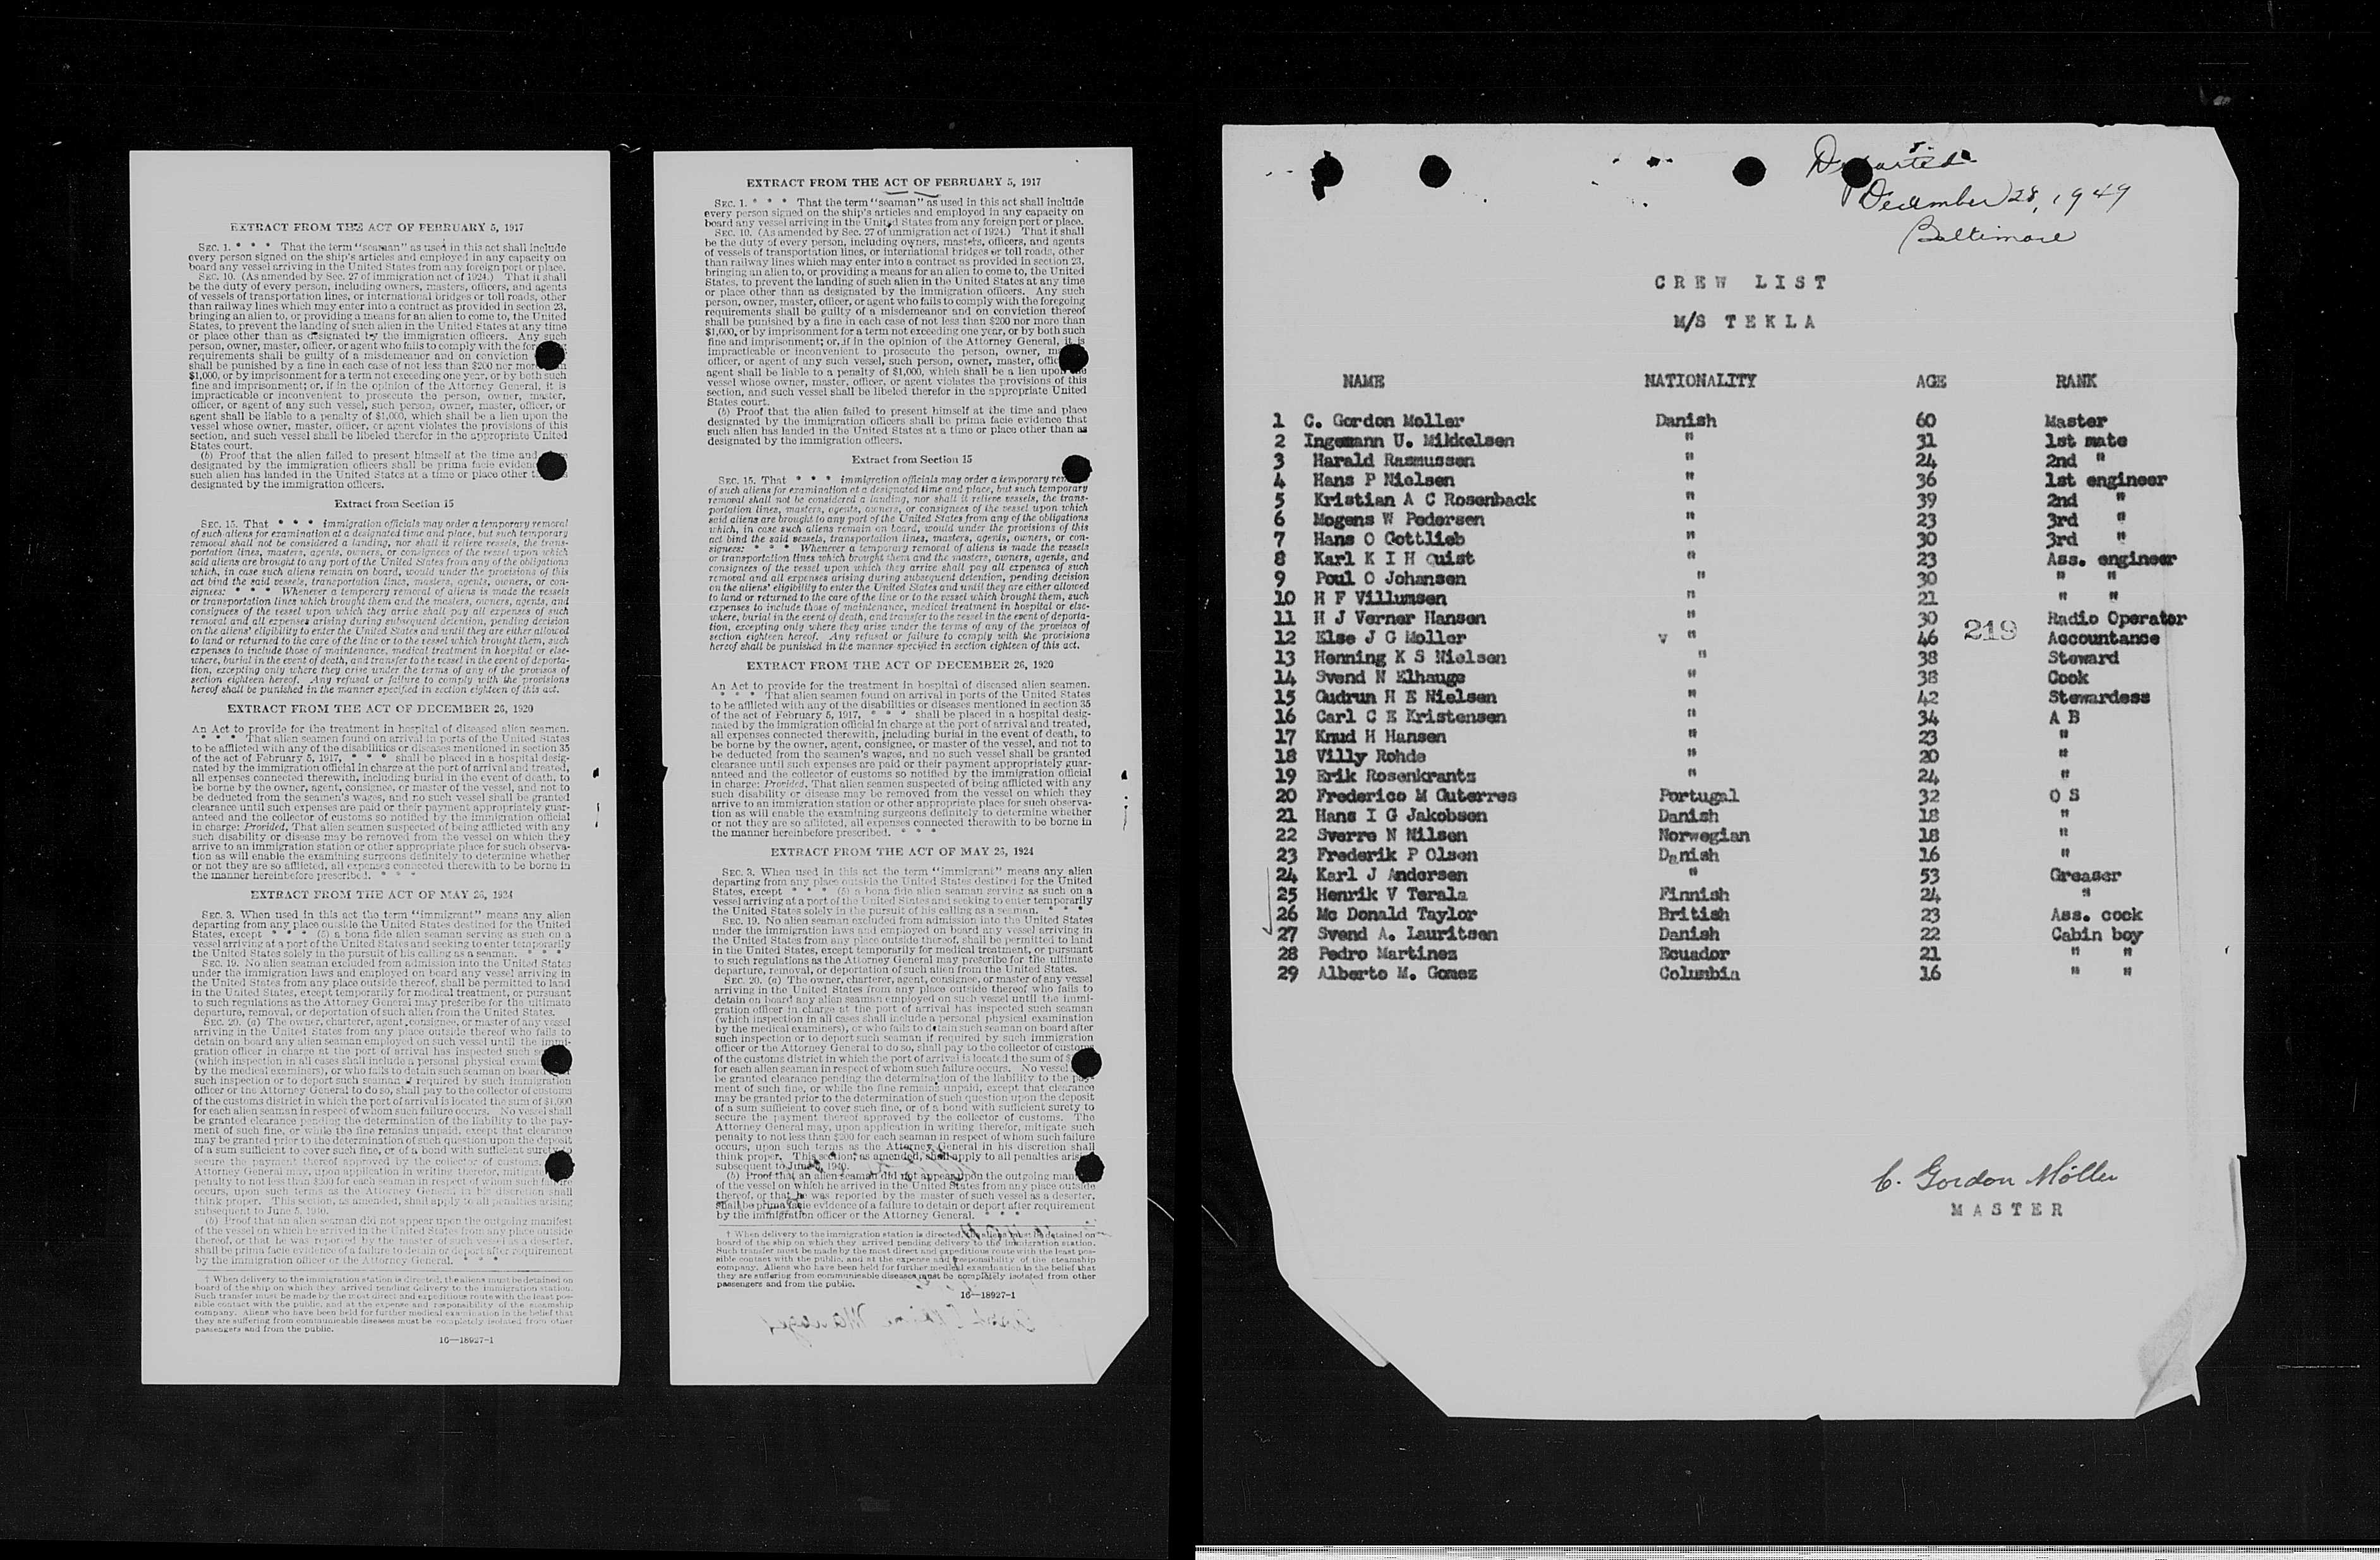 EXTRACT FROM THE ACT OF FEBRUARY 5, 1917
SEC. 1. * * * That the term "seaman" as used in this act shall include
every person signed on the ship's articles and employed in any capacity on
board any vessel arriving in the United States from any foreign port or place.
SEC. 10. (As amended by Sec. 27 of immigration act of 1924.) That it shall
be the duty of every person, including owners, masters, officers, and agents
of vessels of transportation lines, or international bridges or toll roads, other
than railway lines which may enter into a contract as provided in section 23,
bringing an alien to, or providing a means for an alien to come to, the United
States, to prevent the landing of such alien in the United States at any time
or place other than as designated by the immigration officers. Any such
person, owner, master, officer, or agent who fails to comply with the
requirements shall be guilty of a misdemeanor and on conviction
shall be punished by a fine in each case of not less than $200 nor
$1,000, or by imprisonment for a term not exceeding one year, or by both such
fine and imprisonment; or, if in the opinion of the Attorney General, it is
impracticable or inconvenient to prosecute the person, owner, master,
officer, or agent of any such vessel, such person, owner, master, officer, or
agent shall be liable to a penalty of $1,000, which shall be a lien upon the
vessel whose owner, master, officer, or agent violates the provisions of this
section, and such vessel shall be libeled therefor in the appropriate United
States court.
(b) Proof that the alien failed to present himself at the time and
designated by the immigration officers shall be prima facie
such alien has landed in the United States at a time or place other
designated by the immigration officers.
Extract from Section 15
SEC. 15. That * * * immigration officials may order a temporary removal
of such aliens for examination at a designated time and place, but such temporary
removal shall not be considered a landing, nor shall it relieve vessels, the trans-
portation lines, masters, agents, owners, or consignees of the vessel upon which
said aliens are brought to any port of the United States from any of the obligations
which, in case such aliens remain on board, would under the provisions of this
act bind the said vessels, transportation lines, masters, agents, owners, or con-
signees: * * * Whenever a temporary removal of aliens is made the vessels
or transportation lines which brought them and the masters, owners, agents, and
consignees of the vessel upon which they arrive shall pay all expenses of such
removal and all expenses arising during subsequent detention, pending decision
on the aliens' eligibility to enter the United States and until they are either allowed
to land or returned to the care of the line or to the vessel which brought them, such
expenses to include those of maintenance, medical treatment in hospital or else-
where, burial in the event of death, and transfer to the vessel in the event of deporta-
tion, excepting only where they arise under the terms of any of the provisos of
section eighteen hereof. Any refusal or failure to comply with the provisions
hereof shall be punished in the manner specified in section eighteen of this act.
EXTRACT FROM THE ACT OF DECEMBER 26, 1920
An Act to provide for the treatment in hospital of diseased alien seamen.
* * * That alien seamen found on arrival in ports of the United States
to be afflicted with any of the disabilities or diseases mentioned in section 35
of the act of February 5, 1917, * * * shall be placed in a hospital desig-
nated by the immigration official in charge at the port of arrival and treated,
all expenses connected therewith, including burial in the event of death, to
be borne by the owner, agent, consignee, or master of the vessel, and not to
be deducted from the seamen's wages, and no such vessel shall be granted
clearance until such expenses are paid or their payment appropriately guar-
anteed and the collector of customs so notified by the immigration official
in charge: Provided, That alien seamen suspected of being afflicted with any
such disability or disease may be removed from the vessel on which they
arrive to an immigration station or other appropriate place for such observa-
tion as will enable the examining surgeons definitely to determine whether
or not they are so afflicted, all expenses connected therewith to be borne in
the manner hereinbefore prescribed. * * *
EXTRACT FROM THE ACT OF MAY 26, 1924
SEC. 3. When used in this act the term "immigrant" means any alien
departing from any place outside the United States destined for the United
States, except * * * (5) a bona fide alien seaman serving as such on a
vessel arriving at a port of the United States and seeking to enter temporarily
the United States solely in the pursuit of his calling as a seaman. * * *
SEC. 19. No alien seaman excluded from admission into the United States
under the immigration laws and employed on board any vessel arriving in
the United States from any place outside thereof, shall be permitted to land
in the United States, except temporarily for medical treatment, or pursuant
to such regulations as the Attorney General may prescribe for the ultimate
departure, removal, or deportation of such alien from the United States.
SEC. 20. (a) The owner, charterer, agent, consignee, or master of any vessel
arriving in the United States from any place outside thereof who fails to
detain on board any alien seaman employed on such vessel until the immi-
gration officer in charge at the port of arrival has inspected such
(which inspection in all cases shall include a personal physical
by the medical examiners), or who fails to detain such seaman on board
such inspection or to deport such seaman if required by such immigration
officer or the Attorney General to do so, shall pay to the collector of customs
of the customs district in which the port of arrival is located the sum of $1,000
for each alien seaman in respect of whom such failure occurs. No vessel shall
be granted clearance pending the determination of the liability to the pay-
ment of such fine, or while the fine remains unpaid, except that clearance
may be granted prior to the determination of such question upon the deposit
of a sum sufficient to cover such fine, or of a bond with sufficient surety to
secure the payment thereof approved by the collector of customs.
Attorney General may, upon application in writing therefor, mitigate
penalty to not less than $200 for each seaman in respect of whom such failure
occurs, upon such terms as the Attorney General in his discretion shall
think proper. This section, as amended, shall apply to all penalties arising
subsequent to June 5, 1940.
(b) Proof that an alien seaman did not appear upon the outgoing manifest
of the vessel on which he arrived in the United States from any place outside
thereof, or that he was reported by the master of such vessel as a deserter,
shall be prima facie evidence of a failure to detain or deport after requirement
by the immigration officer or the Attorney General. * * *
† When delivery to the immigration station is directed, the aliens must be detained on
board of the ship on which they arrived pending delivery to the immigration station.
Such transfer must be made by the most direct and expeditious route with the least pos-
sible contact with the public, and at the expense and responsibility of the steamship
company. Aliens who have been held for further medical examination in the belief that
they are suffering from communicable diseases must be completely isolated from other
passengers and from the public.
16—18927-1
EXTRACT FROM THE ACT OF FEBRUARY 5, 1917
SEC. 1. * * * That the term "seaman" as used in this act shall include
every person signed on the ship's articles and employed in any capacity on
board any vessel arriving in the United States from any foreign port or place.
SEC. 10. (As amended by Sec. 27 of immigration act of 1924.) That it shall
be the duty of every person, including owners, masters, officers, and agents
of vessels of transportation lines, or international bridges or toll roads, other
than railway lines which may enter into a contract as provided in section 23,
bringing an alien to, or providing a means for an alien to come to, the United
States, to prevent the landing of such alien in the United States at any time
or place other than as designated by the immigration officers. Any such
person, owner, master, officer, or agent who fails to comply with the foregoing
requirements shall be guilty of a misdemeanor and on conviction thereof
shall be punished by a fine in each case of not less than $200 nor more than
$1,000, or by imprisonment for a term not exceeding one year, or by both such
fine and imprisonment; or, if in the opinion of the Attorney General, it is
impracticable or inconvenient to prosecute the person, owner,
officer, or agent of any such vessel, such person, owner, master,
agent shall be liable to a penalty of $1,000, which shall be a lien upon
vessel whose owner, master, officer, or agent violates the provisions of this
section, and such vessel shall be libeled therefor in the appropriate United
States court.
(b) Proof that the alien failed to present himself at the time and place
designated by the immigration officers shall be prima facie evidence that
such alien has landed in the United States at a time or place other than as
designated by the immigration officers.
Extract from Section 15
SEC. 15. That * * * immigration officials may order a temporary
of such aliens for examination at a designated time and place, but such temporary
removal shall not be considered a landing, nor shall it relieve vessels, the trans-
portation lines, masters, agents, owners, or consignees of the vessel upon which
said aliens are brought to any port of the United States from any of the obligations
which, in case such aliens remain on board, would under the provisions of this
act bind the said vessels, transportation lines, masters, agents, owners, or con-
signees: * * * Whenever a temporary removal of aliens is made the vessels
or transportation lines which brought them and the masters, owners, agents, and
consignees of the vessel upon which they arrive shall pay all expenses of such
removal and all expenses arising during subsequent detention, pending decision
on the aliens' eligibility to enter the United States and until they are either allowed
to land or returned to the care of the line or to the vessel which brought them, such
expenses to include those of maintenance, medical treatment in hospital or else-
where, burial in the event of death, and transfer to the vessel in the event of deporta-
tion, excepting only where they arise under the terms of any of the provisos of
section eighteen hereof. Any refusal or failure to comply with the provisions
hereof shall be punished in the manner specified in section eighteen of this act.
EXTRACT FROM THE ACT OF DECEMBER 26, 1920
An Act to provide for the treatment in hospital of diseased alien seamen.
* * * That alien seamen found on arrival in ports of the United States
to be afflicted with any of the disabilities or diseases mentioned in section 35
of the act of February 5, 1917, * * * shall be placed in a hospital desig-
nated by the immigration official in charge at the port of arrival and treated,
all expenses connected therewith, including burial in the event of death, to
be borne by the owner, agent, consignee, or master of the vessel, and not to
be deducted from the seamen's wages, and no such vessel shall be granted
clearance until such expenses are paid or their payment appropriately guar-
anteed and the collector of customs so notified by the immigration official
in charge: Provided, That alien seamen suspected of being afflicted with any
such disability or disease may be removed from the vessel on which they
arrive to an immigration station or other appropriate place for such observa-
tion as will enable the examining surgeons definitely to determine whether
or not they are so afflicted, all expenses connected therewith to be borne in
the manner hereinbefore prescribed. * * *
EXTRACT FROM THE ACT OF MAY 26, 1924
SEC. 3. When used in this act the term "immigrant" means any alien
departing from any place outside the United States destined for the United
States, except * * * (5) a bona fide alien seaman serving as such on a
vessel arriving at a port of the United States and seeking to enter temporarily
the United States solely in the pursuit of his calling as a seaman. * * *
SEC. 19. No alien seaman excluded from admission into the United States
under the immigration laws and employed on board any vessel arriving in
the United States from any place outside thereof, shall be permitted to land
in the United States, except temporarily for medical treatment, or pursuant
to such regulations as the Attorney General may prescribe for the ultimate
departure, removal, or deportation of such alien from the United States.
SEC. 20. (a) The owner, charterer, agent, consignee, or master of any vessel
arriving in the United States from any place outside thereof who fails to
detain on board any alien seaman employed on such vessel until the immi-
gration officer in charge at the port of arrival has inspected such seaman
(which inspection in all cases shall include a personal physical examination
by the medical examiners), or who fails to detain such seaman on board after
such inspection or to deport such seaman if required by such immigration
officer or the Attorney General to do so, shall pay to the collector of customs
of the customs district in which the port of arrival is located the sum of
for each alien seaman in respect of whom such failure occurs. No vessel
be granted clearance pending the determination of the liability to the pay-
ment of such fine, or while the fine remains unpaid, except that clearance
may be granted prior to the determination of such question upon the deposit
of a sum sufficient to cover such fine, or of a bond with sufficient surety to
secure the payment thereof approved by the collector of customs. The
Attorney General may, upon application in writing therefor, mitigate such
penalty to not less than $200 for each seaman in respect of whom such failure
occurs, upon such terms as the Attorney General in his discretion shall
think proper. This section, as amended, shall apply to all penalties
subsequent to June 5, 1940.
(b) Proof that an alien seaman did not appear upon the outgoing
of the vessel on which he arrived in the United States from any place outside
thereof, or that he was reported by the master of such vessel as a deserter,
shall be prima facie evidence of a failure to detain or deport after requirement
by the immigration officer or the Attorney General. * * *
† When delivery to the immigration station is directed, the aliens must be detained on
board of the ship on which they arrived pending delivery to the immigration station.
Such transfer must be made by the most direct and expeditious route with the least pos-
sible contact with the public, and at the expense and responsibility of the steamship
company. Aliens who have been held for further medical examination in the belief that
they are suffering from communicable diseases must be completely isolated from other
passengers and from the public.
16—18927-1
Departed
December 28, 1949
Baltimore
CREW LIST
M/S TEKLA
NAME NATIONALITY AGE RANK
1 C. Gordon Moller Danish 60 Master
2 Ingemann U. Mikkelsen " 31 1st mate
3 Harald Rasmussen " 24 2nd "
4 Hans P Nielsen " 36 1st engineer
5 Kristian A C Rosenback " 39 2nd "
6 Mogens W Pedersen " 23 3rd "
7 Hans O Gottlieb " 30 3rd "
8 Karl K I H Quist " 23 Ass. engineer
9 Poul O Johansen " 30 " "
10 H F Villumsen " 21 " "
11 H J Verner Hansen " 30 Radio Operator
12 Else J G Moller v " 46 219 Accountance
13 Henning K S Nielsen " 38 Steward
14 Svend N Elhauge " 38 Cook
15 Gudrun H E Nielsen " 42 Stewardess
16 Carl C E Kristensen " 34 A B
17 Knud H Hansen " 23 "
18 Villy Rohde " 20 "
19 Erik Rosenkrants " 24 "
20 Frederico M Guterres Portugal 32 O S
21 Hans I G Jakobsen Danish 18 "
22 Sverre N Nilsen Norwegian 18 "
23 Frederik P Olsen Danish 16 "
24 Karl J Andersen " 53 Greaser
25 Henrik V Terala Finnish 24 "
26 Mc Donald Taylor British 23 Ass. cook
27 Svend A. Lauritsen Danish 22 Cabin boy
28 Pedro Martinez Ecuador 21 " "
29 Alberto M. Gomez Columbia 16 " "
C. Gordon Möller
MASTER